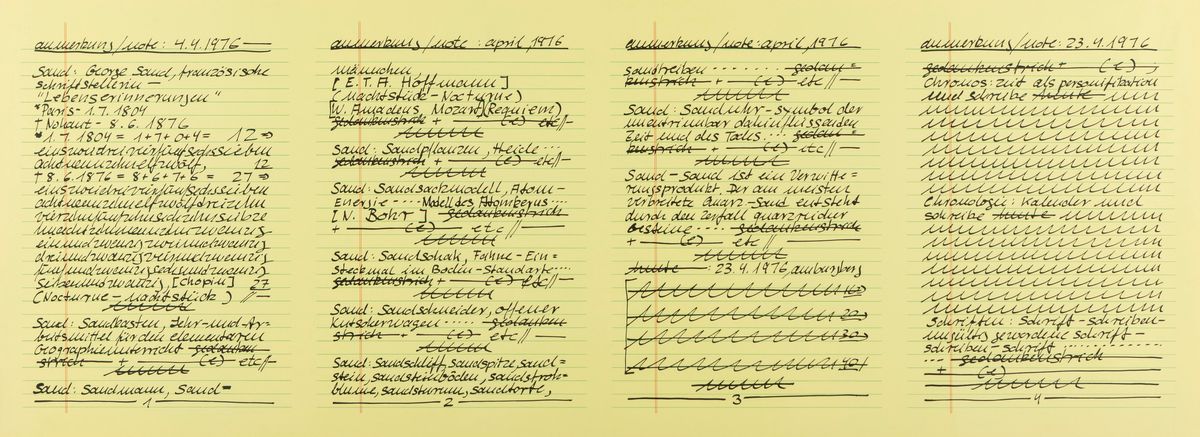 anmerkung/note: 4.4.1976
Sand: George Sand, französische
schriftstellerin —
"Lebenserinnerungen"
* Paris - 1.7.1804
† Nohant - 8.6.1876
* 1.7.1804 = 1+7+0+4= 12 ⇒
einszweidreivierfünfsechssieben
achtneunzehnelfzwölf, 12
† 8.6.1876 = 8+6+7+6 = 27 ⇒
einszweidreivierfünfsechssieben
achtneunzehnelfzwölfdreizehn
vierzehnfünfzehnsechzehnsiebze
hnachtzehnneunzehnzwanzig
einundzwanzigzweiundzwanzig
dreiundzwanzigvierundzwanzig
fünfundzwanzigsechsundzwanzig
siebenundzwanzig, [Chopin] 27
(Nocturne - nachtstücke) //—
Sand: Sandkasten, Lehr-und-Ar-
beitsmittel für den elementaren
Geographieunterricht gedanken-
strich + — (e) — etc//—
Sand: Sandmann, Sand-
1
anmerkung/note: april, 1976
männchen
[E.T.A. Hoffmann]
(nachtstücke - Nocturne)
[W. Amadeus Mozart (Requiem)
gedankenstrich + — (e) — etc//—
Sand: Sandpflanzen, Heide ....
gedankenstrich + — (e) — etc//—
Sand: Sandsackmodell, Atom-
Energie ---- Modell des Atomkerns ....
[N. Bohr] gedankenstrich
+ — (e) — etc//—
Sand: Sandschak, Fahne - Ein=
steckmal im Boden - Standarte ....
gedankenstrich + — (e) — etc//—
Sand: Sandschneider, offener
Kutscherwagen ..... gedanken
strich + — (e) — etc//—
Sand: Sandschliff, sandspitze, sand=
stein, sandsteinböden, sandstroh=
blume, sandsturm, sandtorte,
2
anmerkung/note: april, 1976
sandtreiben ..... gedan=
kenstrich + — (e) — etc//—
Sand: Sanduhr - symbol der
unentrinnbar dahinfliessenden
Zeit und des Todes.... gedan=
kenstrich + — (e) — etc//—
Sand - Sand ist ein Verwitte=
rungsprodukt. Der am meisten
verbreitete Quarz-Sand entsteht
durch den Zerfall quarzreicher
Gesteine ..... gedankenstrich
+ — (e) — etc//—
heute — : 23.4.1976,
10
20
30
40/
3
anmerkung/note: 23.4.1976
gedankenstrich + — (e) —,
Chronos: zeit als personifikation
und schreibe heute
Chronologie: Kalender und
schreibe heute
Schriften: Schrift-schreiben-
schreiben-schrift
— gedankenstrich
+ — (e) —
4